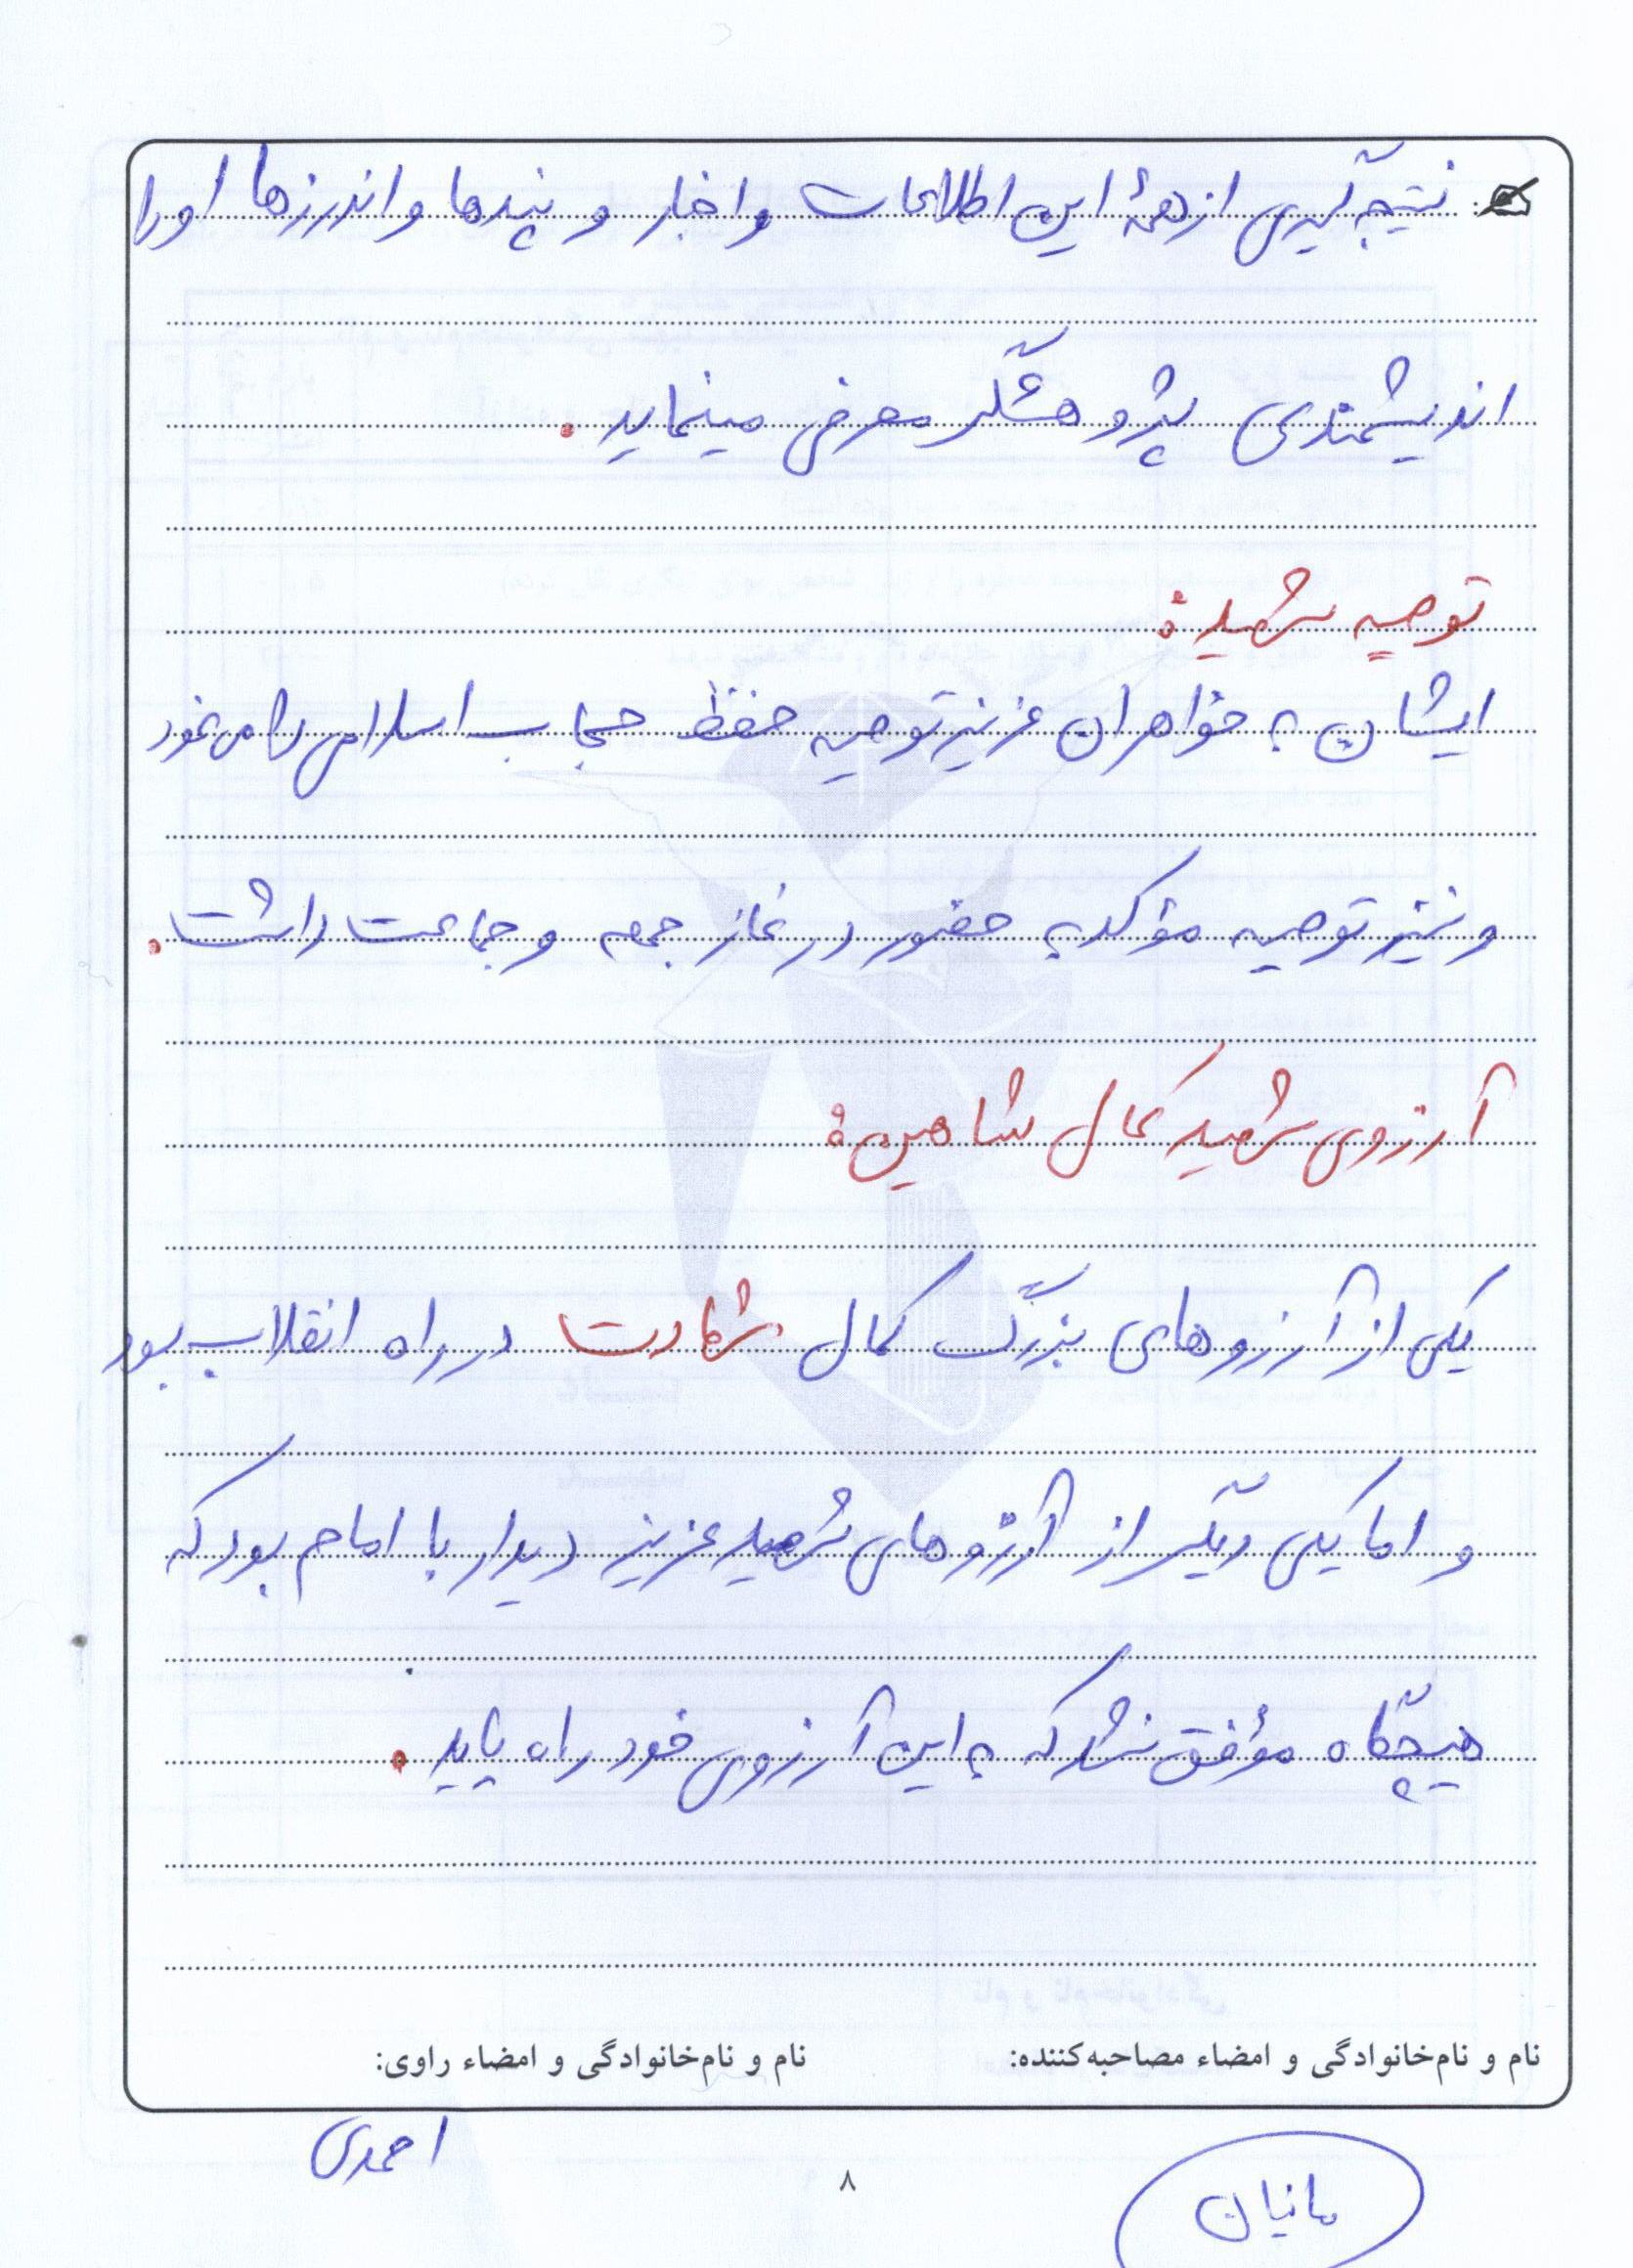 نتیجه گیری از همهٔ این اطلاعات و اخبار و پندها و اندرزها او را
اندیشمندی پژوهشگر معرفی مینماید.
توصیه شهید:
ایشان به خواهران عزیز توصیه حفظ حجاب اسلامی را می نمود
و نیز توصیه مؤکد به حضور در نماز جمعه و جماعت داشت.
آرزوی شهید کمال شاهین:
یکی از آرزوهای بزرگ کمال شهادت در راه انقلاب بود
و اما یکی دیگر از آرزوهای شهید عزیز دیدار با امام بود که
هیچگاه مؤفق نشد که به این آرزوی خود راه یابد.
نام و نام‌خانوادگی و امضاء مصاحبه‌کننده: نام و نام‌خانوادگی و امضاء راوی:
احمدی
مانیان
۸